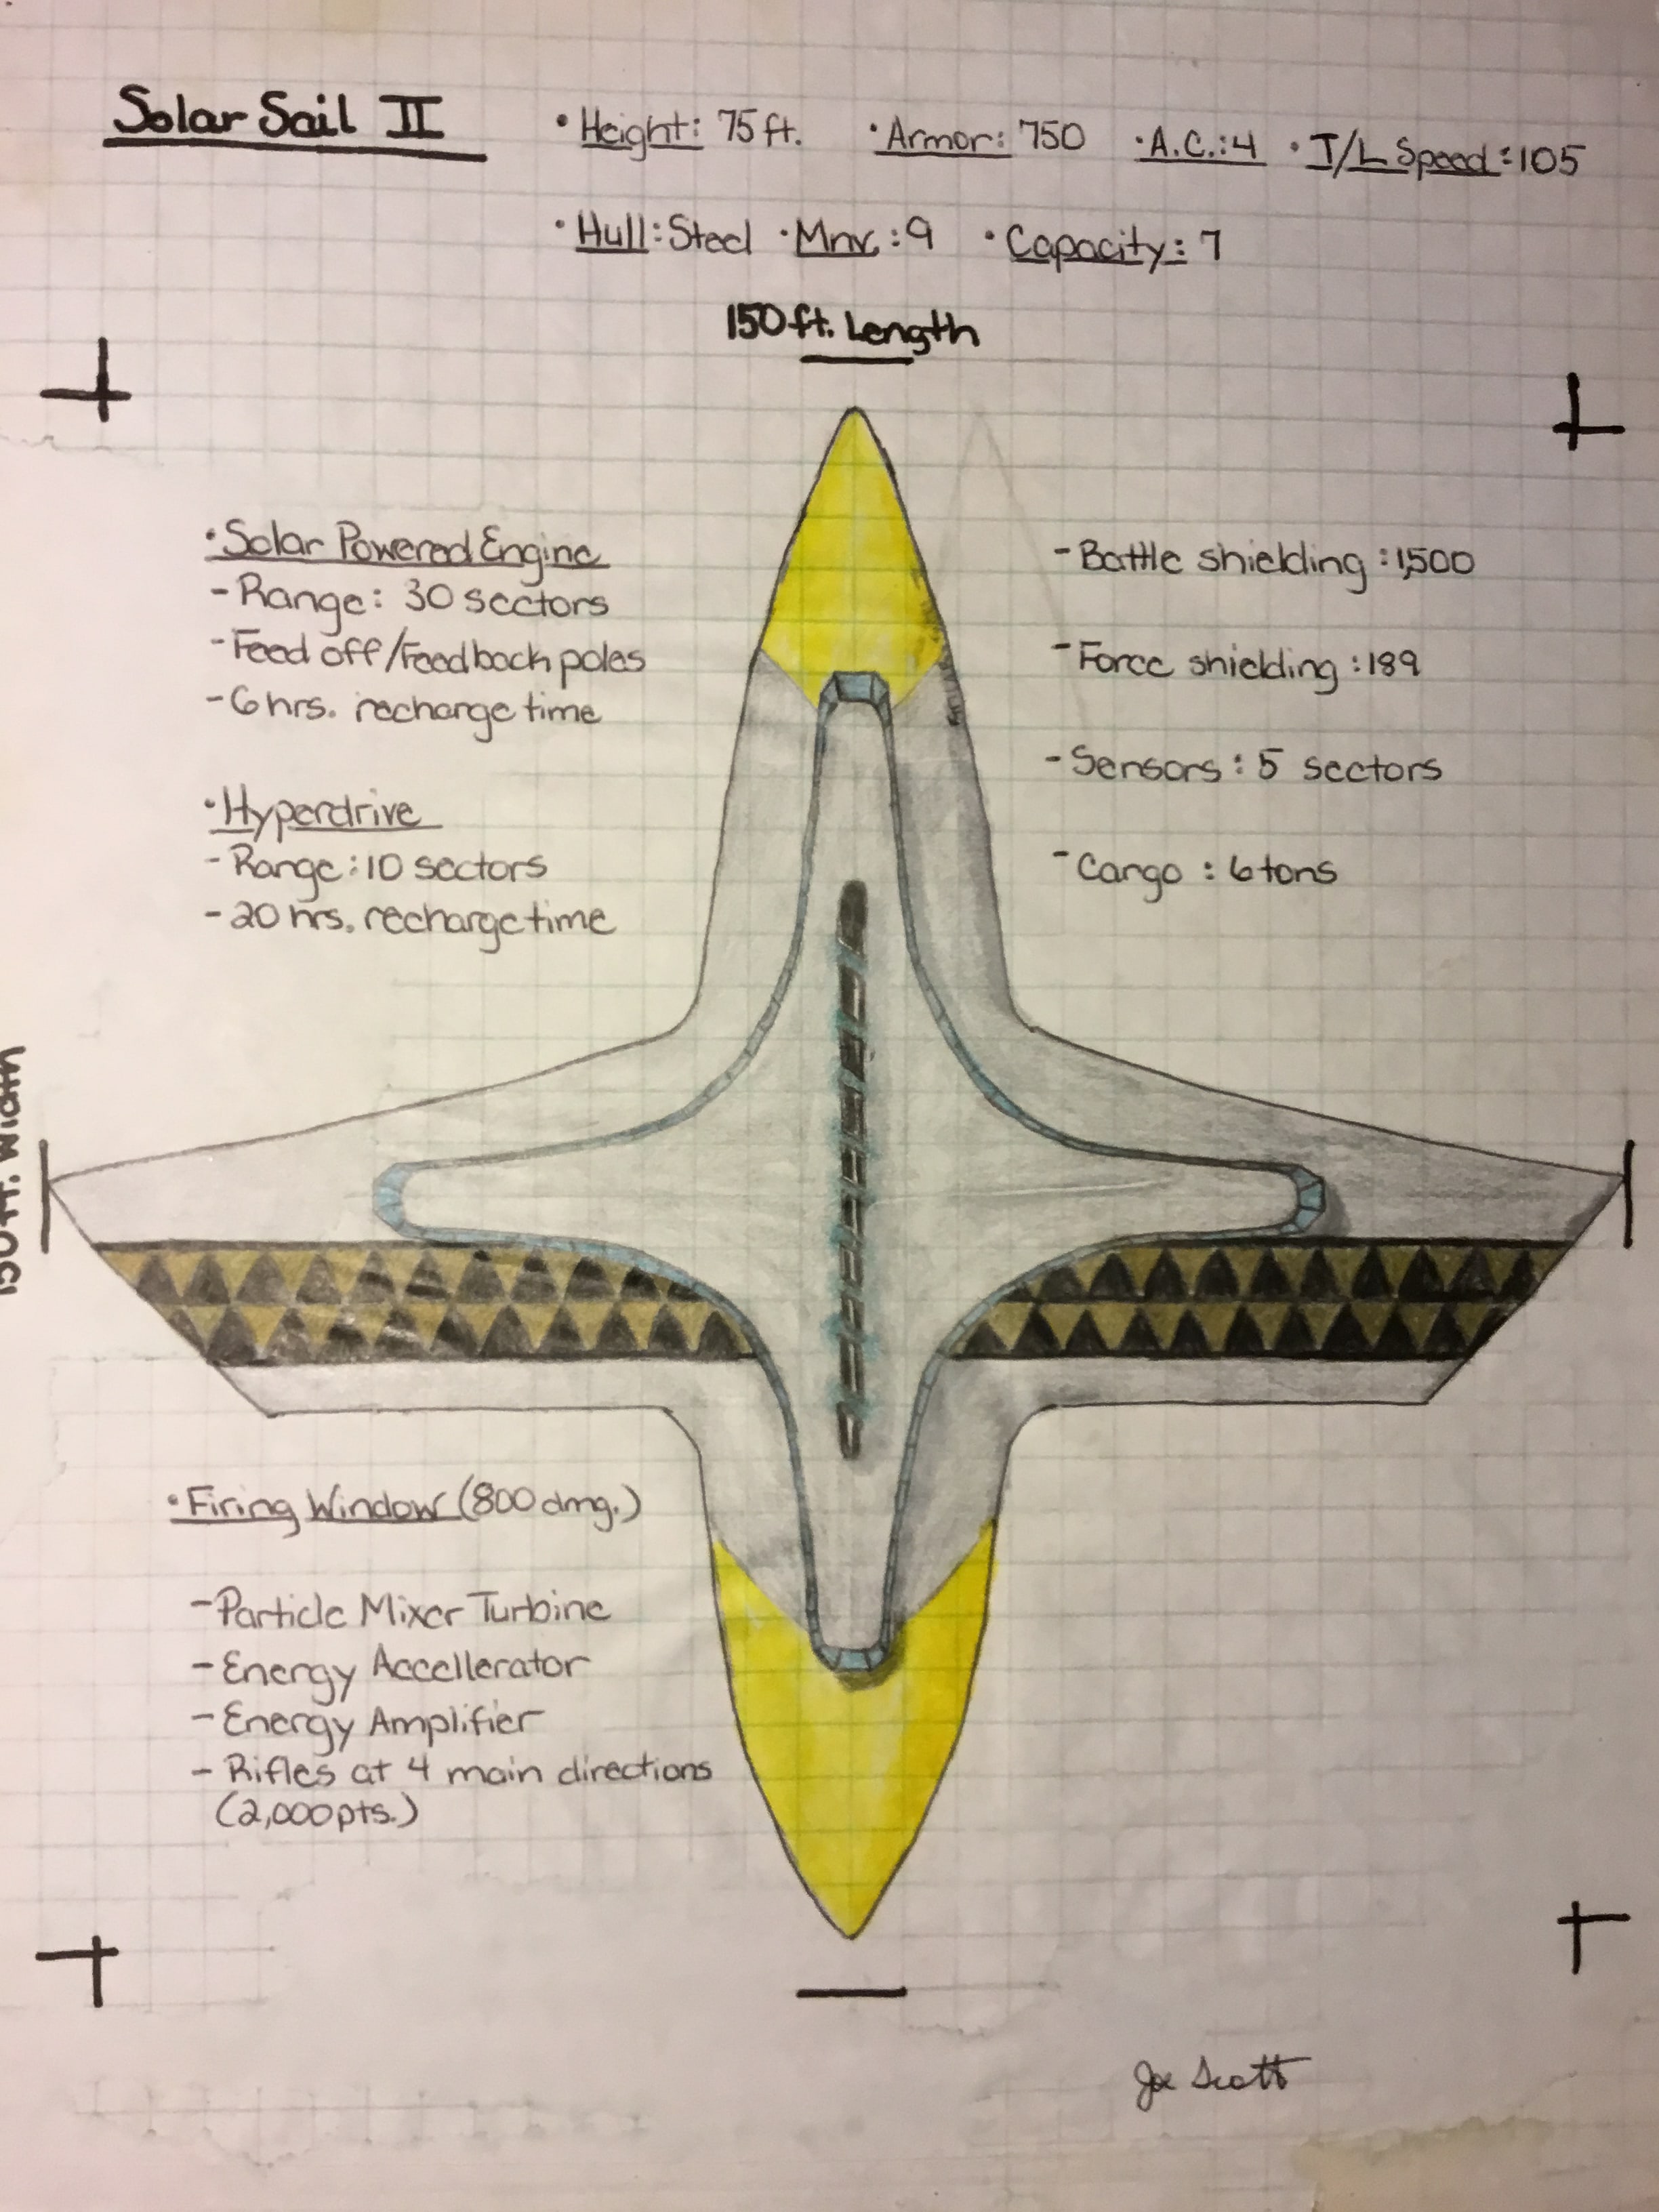 Solar Sail II
• Height: 75 ft. • Armor: 750 • A.C.: 4 • T/L Speed: 105
• Hull: Steel • Mnv.: 9 • Capacity: 7
150 ft. Length
• Solar Powered Engine
- Range: 30 sectors
- Feed off/Feedback poles
- 6 hrs. recharge time
• Hyperdrive
- Range: 10 sectors
- 20 hrs. recharge time
- Battle shielding : 1,500
- Force shielding : 189
- Sensors : 5 sectors
- Cargo : 6 tons
150 ft. Width
• Firing Window (800 dmg.)
- Particle Mixer Turbine
- Energy Accellerator
- Energy Amplifier
- Rifles at 4 main directions
(2,000 pts.)
Joe Scott